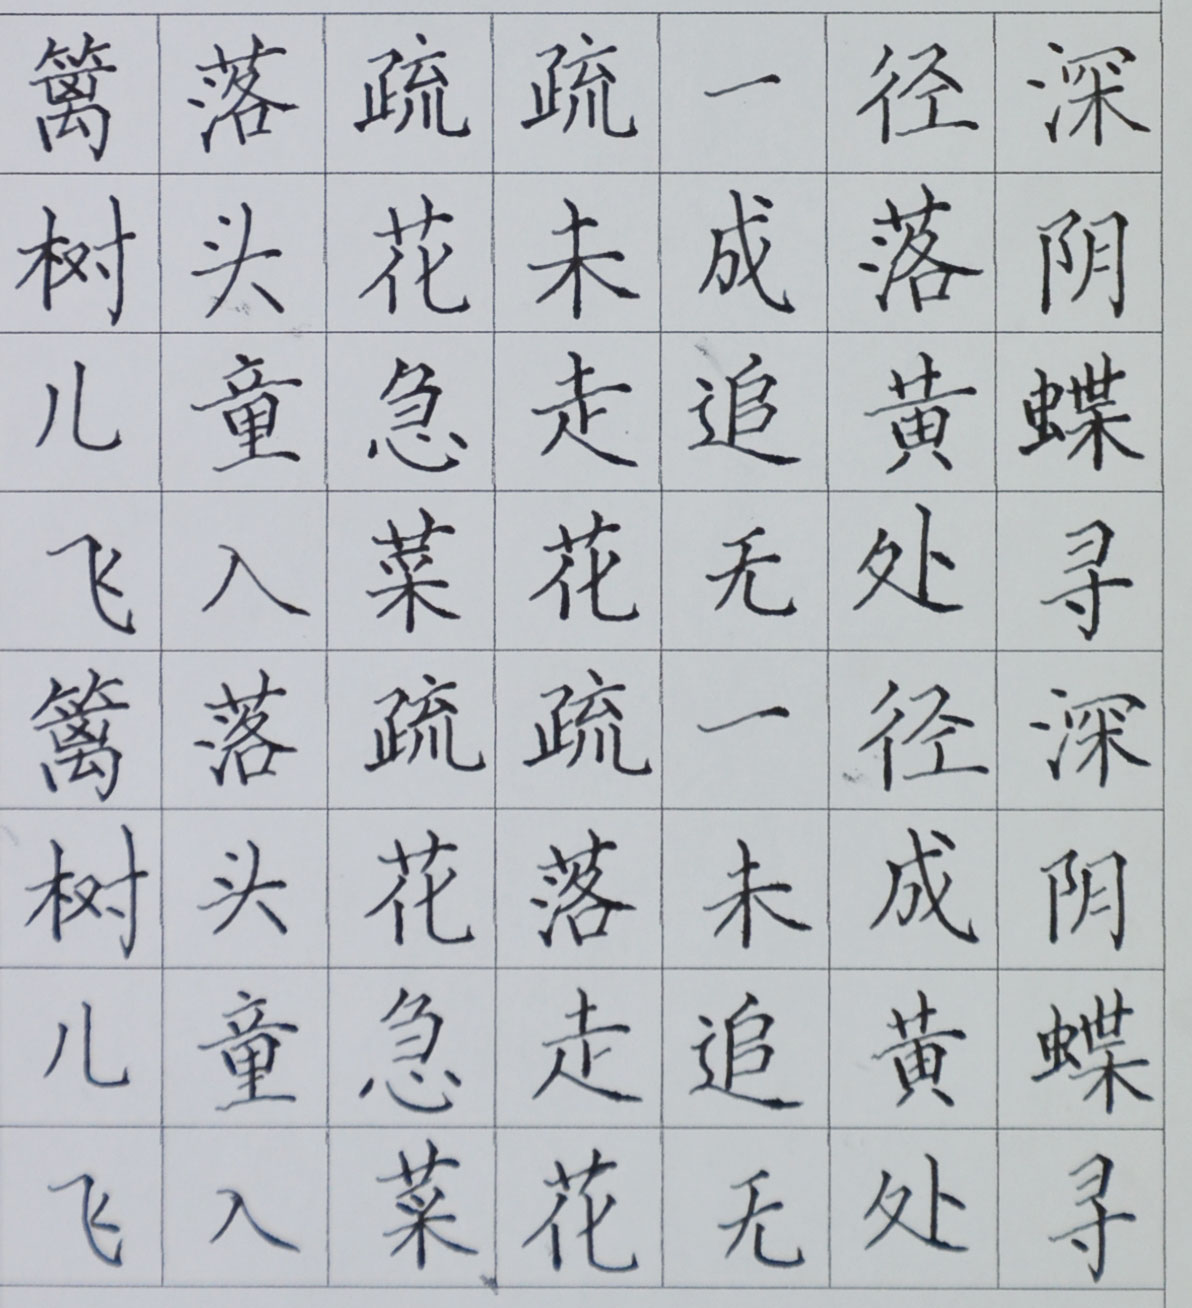 篱落疏疏一径深
树头花未成落阴
儿童急走追黄蝶
飞入菜花无处寻
篱落疏疏一径深
树头花落未成阴
儿童急走追黄蝶
飞入菜花无处寻